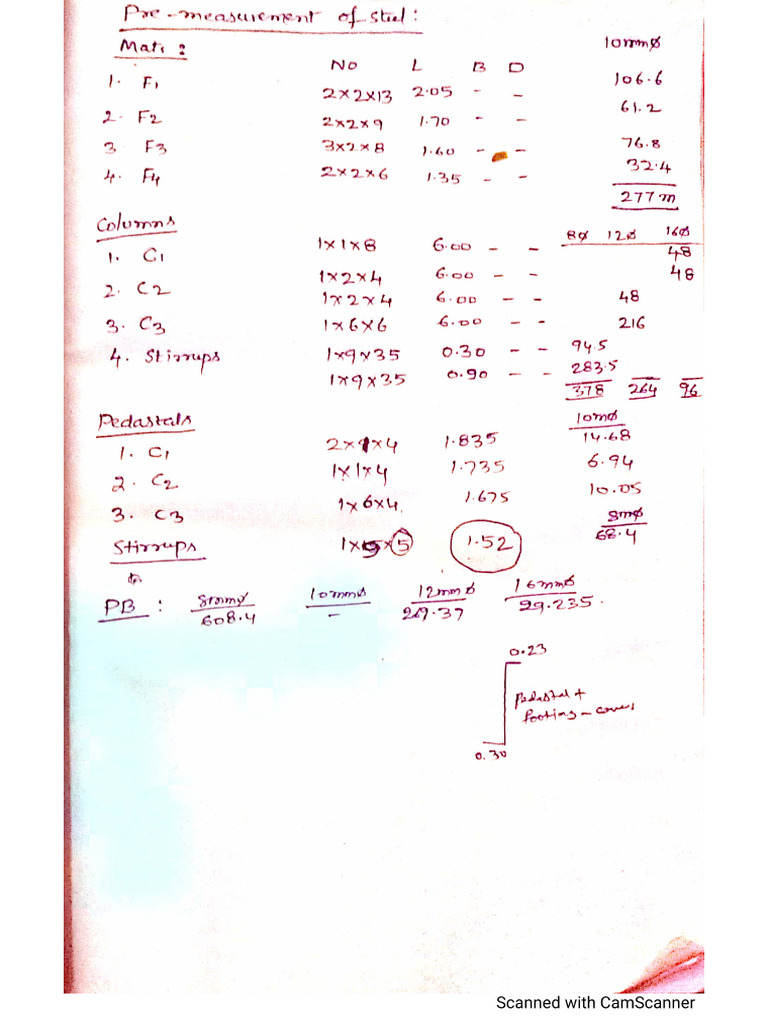 Pre-measurement of steel:
Mat: 10mmø
No L B D
1. F1 2x2x13 2.05 - - 106.6
2. F2 2x2x9 1.70 - - 61.2
3 F3 3x2x8 1.60 - - 76.8
4. F4 2x2x6 1.35 - - 32.4
277m
Columns 8ø 12ø 16ø
1. C1 1x1x8 6.00 - - 48
1x2x4 6.00 - - 48
2. C2 1x2x4 6.00 - - 48
3. C3 1x6x6 6.00 - - 216
4. Stirrups 1x9x35 0.30 - - 94.5
1x9x35 0.90 - - 283.5
378 264 96
Pedastals 10mø
1. C1 2x1x4 1.835 14.68
2. C2 1x1x4 1.735 6.94
3. C3 1x6x4 1.675 10.05
8mø
Stirrups 5 1.52 68.4
PB : 8mmø 10mmø 12mmø 16mmø
608.4 - 29.235.
0.23
Pedastal +
footing - cover
0.30
Scanned with CamScanner